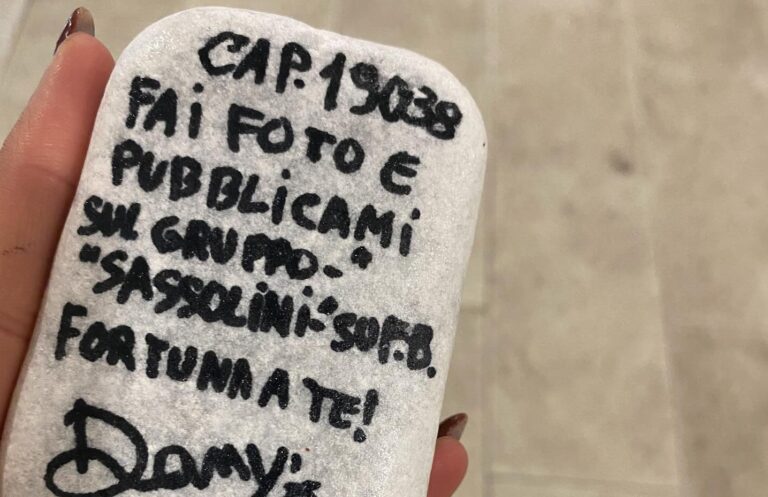 CAP. 19038
FAi FOTO E
PUBBLiCAMi
SUL GRUPPO-"
"SASSOLiNi-"SU F.B.
FORTUNA A TE!
Damy